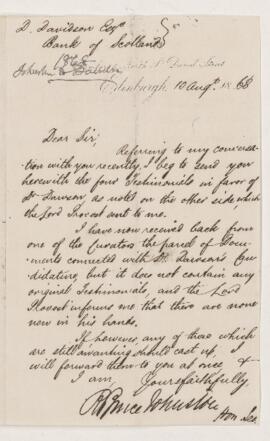 D. Davidson Esqre
Bank of Scotland
1868
Johnston & Dawson
North St David Street
Edinburgh, 10 Augt. 1868
Dear Sir,
Referring to my conversa-
tion with you recently, I beg to send you
herewith the four Testimonials in favor of
Dr Dawson, as noted on the other side which
the Lord Provost sent to me.
I have now received back from
one of the Curators the parcel of Docu-
ments connected with Dr. Dawson's Can-
didating, but it does not contain any
original Testimonials, and the Lord
Provost informs me that there are none
now in his hands.
If however, any of those which
are still awanting should cast up, I
will forward them to you at once, &
I am, Yours faithfully
R Bruce Johnston
Hon Sec